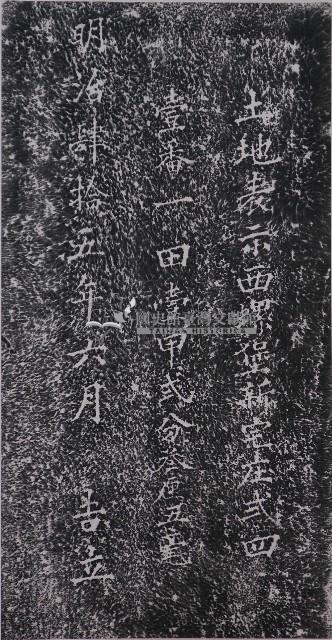 土地表示西螺堡新宅庄弍四
壹番一田壹甲弍分叁厘五毫
明治肆拾五年六月 吉立
國史館臺灣文獻館
TAIWAN HISTORICA